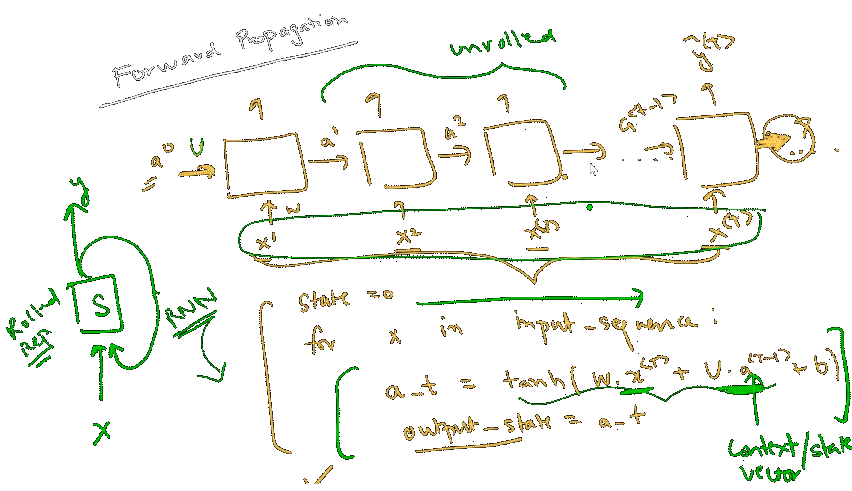 Forward Propagation
unrolled
ŷ^(T)
a^0 U a^1 a^2 a^(T-1)
w
x^1 x^2 x^(3) x^(T)
y
S
Rolled
Rep
RNN
X
state = 0
for x in input_sequence :
a_t = tanh( W. x^(T) + U. a^(T-1) + b)
output_state = a_t
Context/state
vector